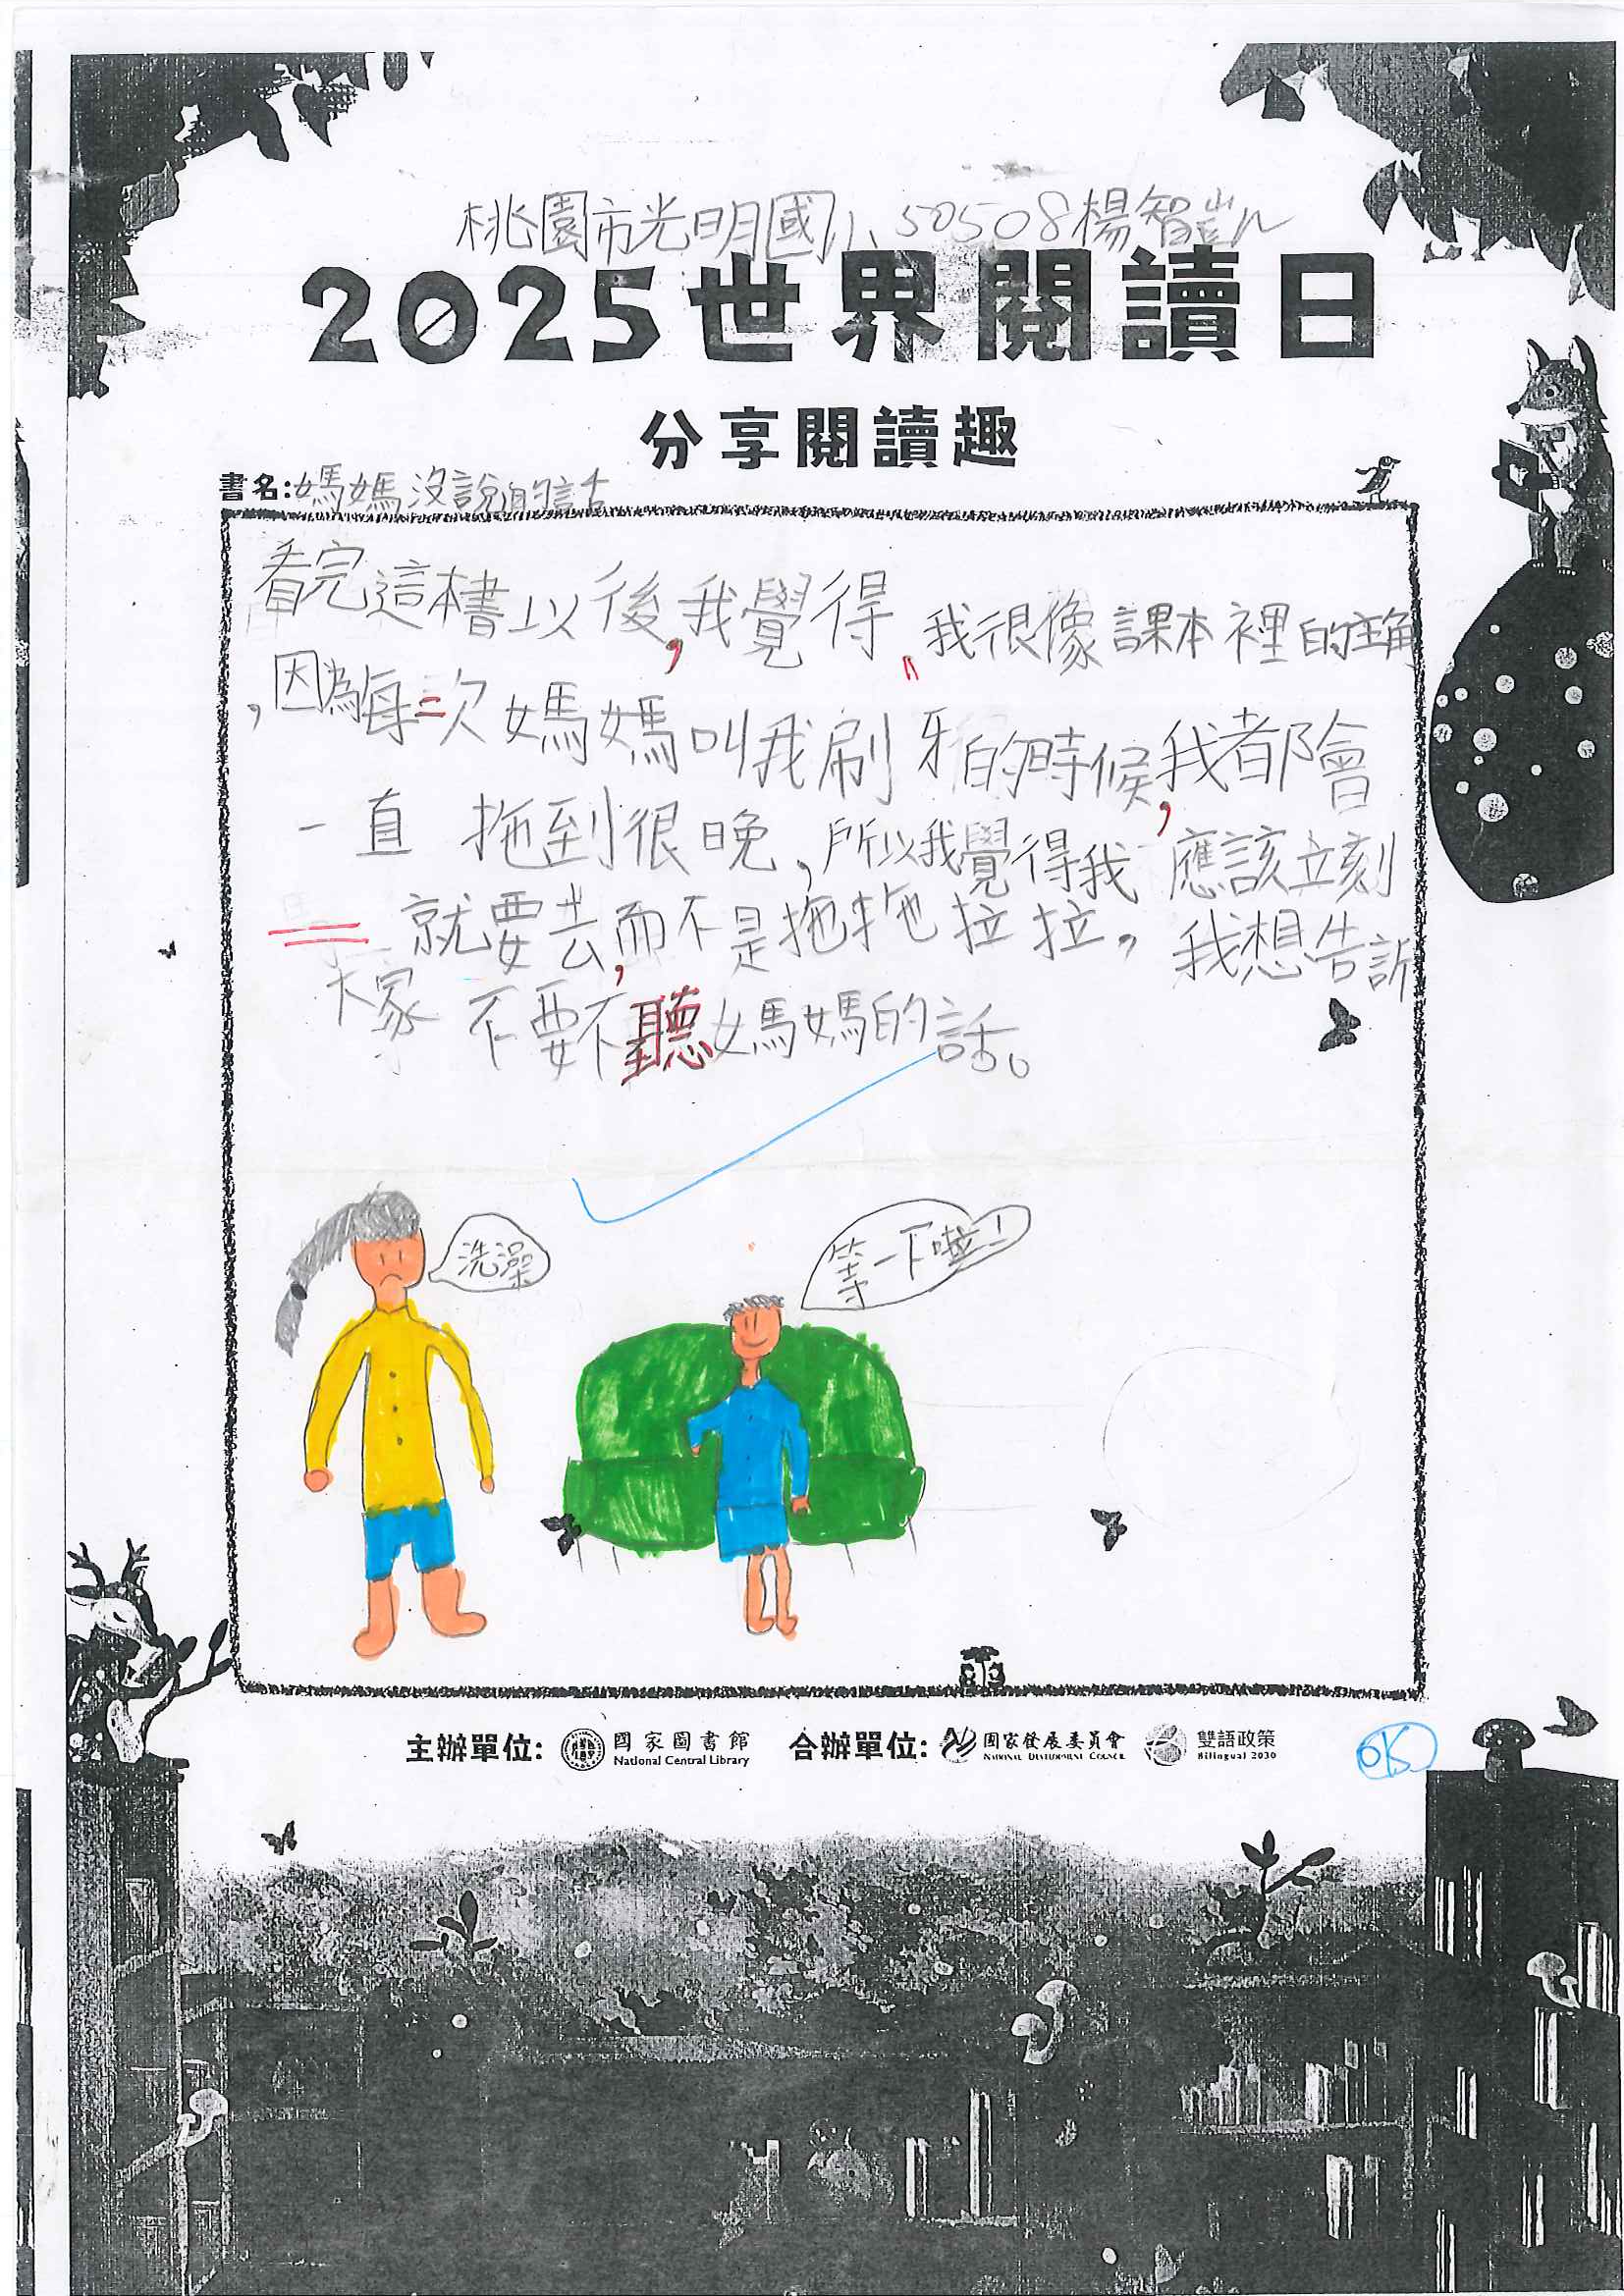 桃園市光明國小50508楊智凱
2025世界閱讀日
分享閱讀趣
書名:媽媽沒說的話
看完這本書以後,我覺得我很像課本裡的主角
,因為每一次媽媽叫我刷牙的時候,我都會
一直拖到很晚,所以我覺得我應該立刻
就要去,而不是拖拖拉拉,我想告訴
大家不要不聽媽媽的話。
洗澡
等一下啦!
主辦單位: 國家圖書館 National Central Library 合辦單位: 國家發展委員會 National Development Council 雙語政策 Bilingual 2030
OK